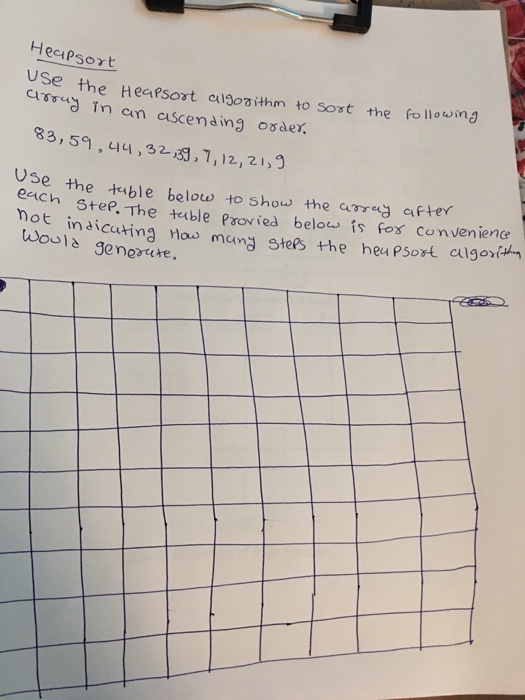 Heapsort
Use the Heapsort algorithm to sort the following
array in an ascending order.
83, 59, 44, 32, 39, 7, 12, 21, 9
Use the table below to show the array after
each step. The table Provied below is for convenience
not indicating How many steps the heapsort algorithm
Would generate.